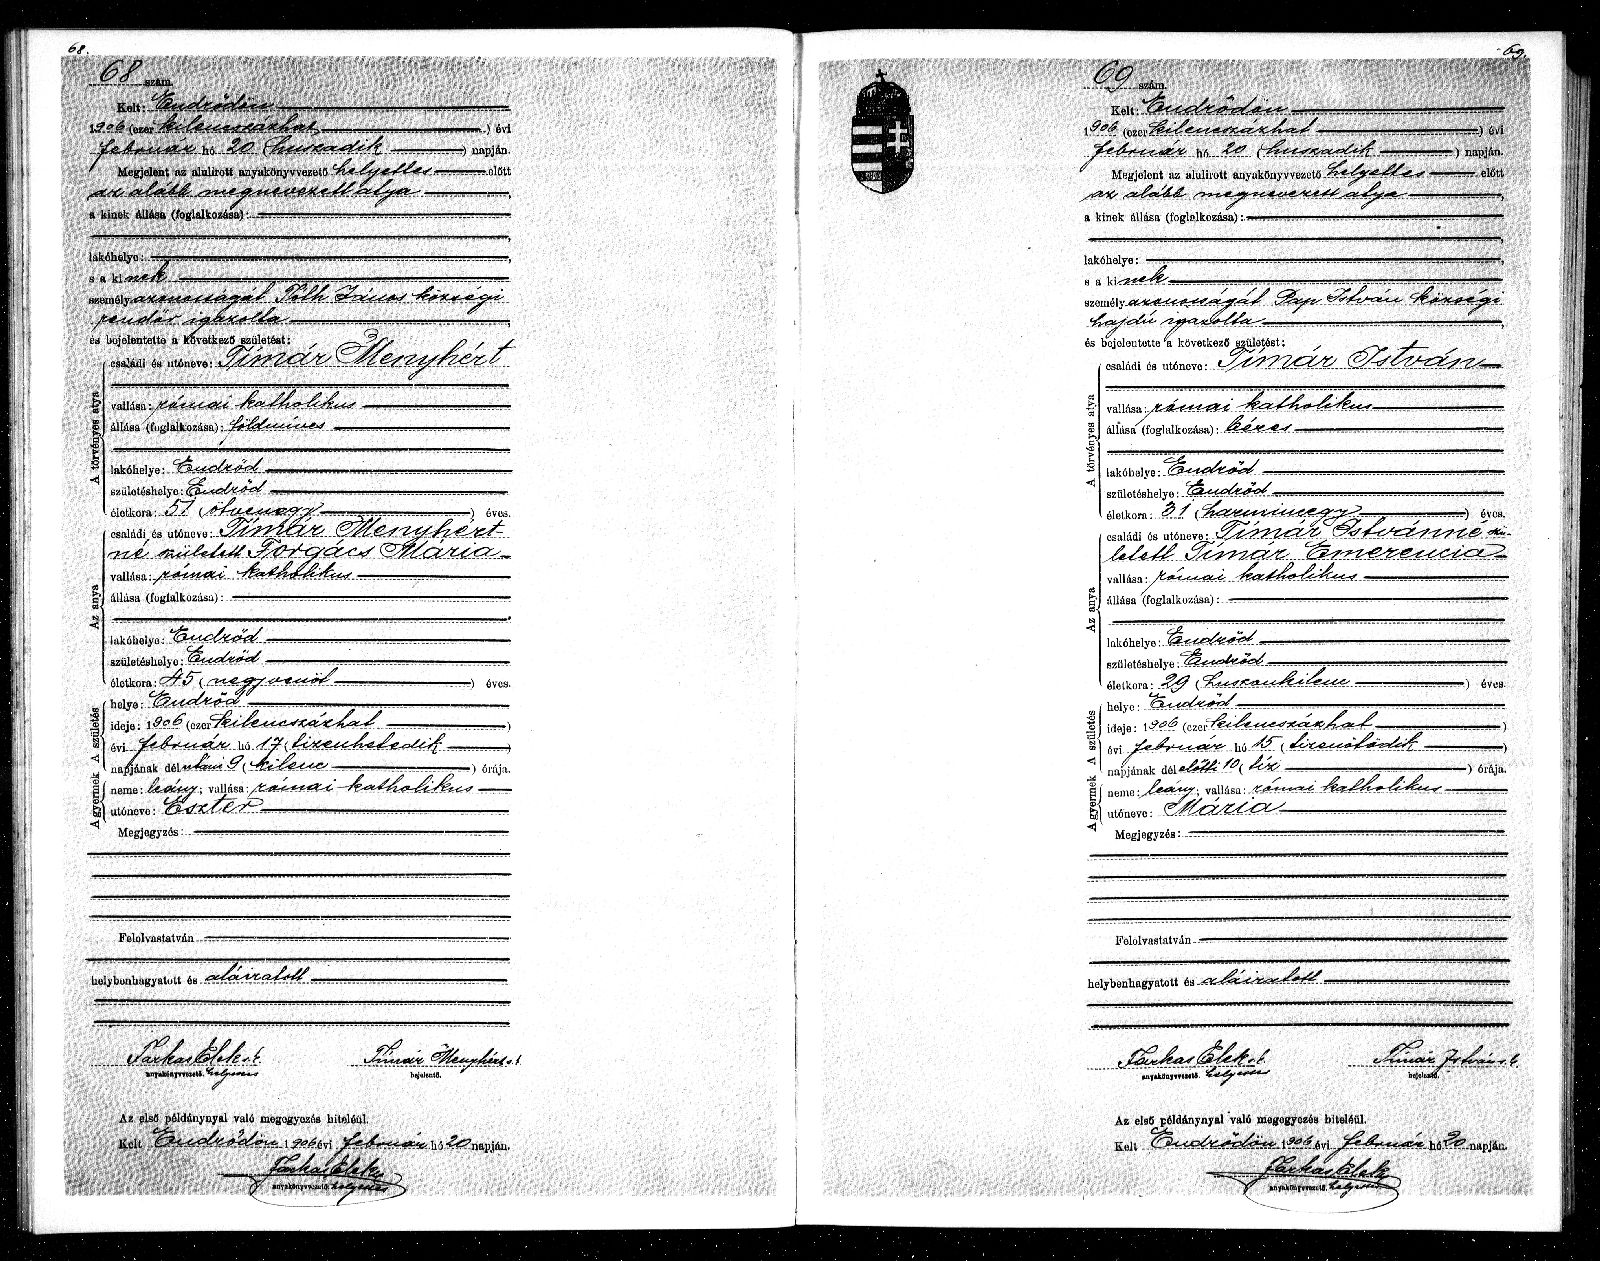 68.
68 szám.
Kelt: Endrődön
1906 (ezer kilenczszázhat) évi
február hó 20 (huszadik) napján.
Megjelent az alulirott anyakönyvvezető helyettes előtt
az alább megnevezett atya,
a kinek állása (foglalkozása):
lakóhelye:
s a kinek
személyazonosságát Tóth János községi
rendőr igazolta,
és bejelentette a következő születést:
A törvényes atya
családi és utóneve: Tímár Menyhért
vallása: római katholikus
állása (foglalkozása): földmíves
lakóhelye: Endrőd
születéshelye: Endrőd
életkora: 51 (ötvenegy) éves.
Az anya
családi és utóneve: Tímár Menyhért-
né született Forgács Mária
vallása: római katholikus
állása (foglalkozása):
lakóhelye: Endrőd
születéshelye: Endrőd
életkora: 45 (negyvenöt) éves.
A születés
helye: Endrőd
ideje: 1906 (ezer kilencszázhat)
évi február hó 17 (tizenhetedik)
napjának dél utáni 9 (kilenc) órája.
A gyermek
neme: leány; vallása: római katholikus
utóneve: Eszter
Megjegyzés:
Felolvastatván
helybenhagyatott és aláiratott
Farkas Elek s.k.
anyakönyvvezető. helyettes
Tímár Menyhért s.k.
bejelentő.
Az első példánynyal való megegyezés hiteléül.
Kelt Endrődön 1906 évi február hó 20 napján.
Farkas Elek
anyakönyvvezető. helyettes
69.
69 szám.
Kelt: Endrődön
1906 (ezer kilencszázhat) évi
február hó 20 (huszadik) napján.
Megjelent az alulirott anyakönyvvezető helyettes előtt
az alább megnevezett atya
a kinek állása (foglalkozása):
lakóhelye:
s a kinek
személyazonosságát Pap István községi
hajdú igazolta,
és bejelentette a következő születést:
A törvényes atya
családi és utóneve: Tímár István
vallása: római katholikus
állása (foglalkozása): béres
lakóhelye: Endrőd
születéshelye: Endrőd
életkora: 31 (harmincegy) éves.
Az anya
családi és utóneve: Tímár Istvánné szü-
letett Tímár Emerencia
vallása: római katholikus
állása (foglalkozása):
lakóhelye: Endrőd
születéshelye: Endrőd
életkora: 29 (huszonkilenc) éves.
A születés
helye: Endrőd
ideje: 1906 (ezer kilencszázhat)
évi február hó 15 (tizenötödik)
napjának dél előtti 10 (tíz) órája.
A gyermek
neme: leány; vallása: római katholikus
utóneve: Mária
Megjegyzés:
Felolvastatván
helybenhagyatott és aláiratott
Farkas Elek s.k.
anyakönyvvezető. helyettes
Tímár István s.k.
bejelentő.
Az első példánynyal való megegyezés hiteléül.
Kelt Endrődön 1906 évi február hó 20 napján.
Farkas Elek
anyakönyvvezető. helyettes